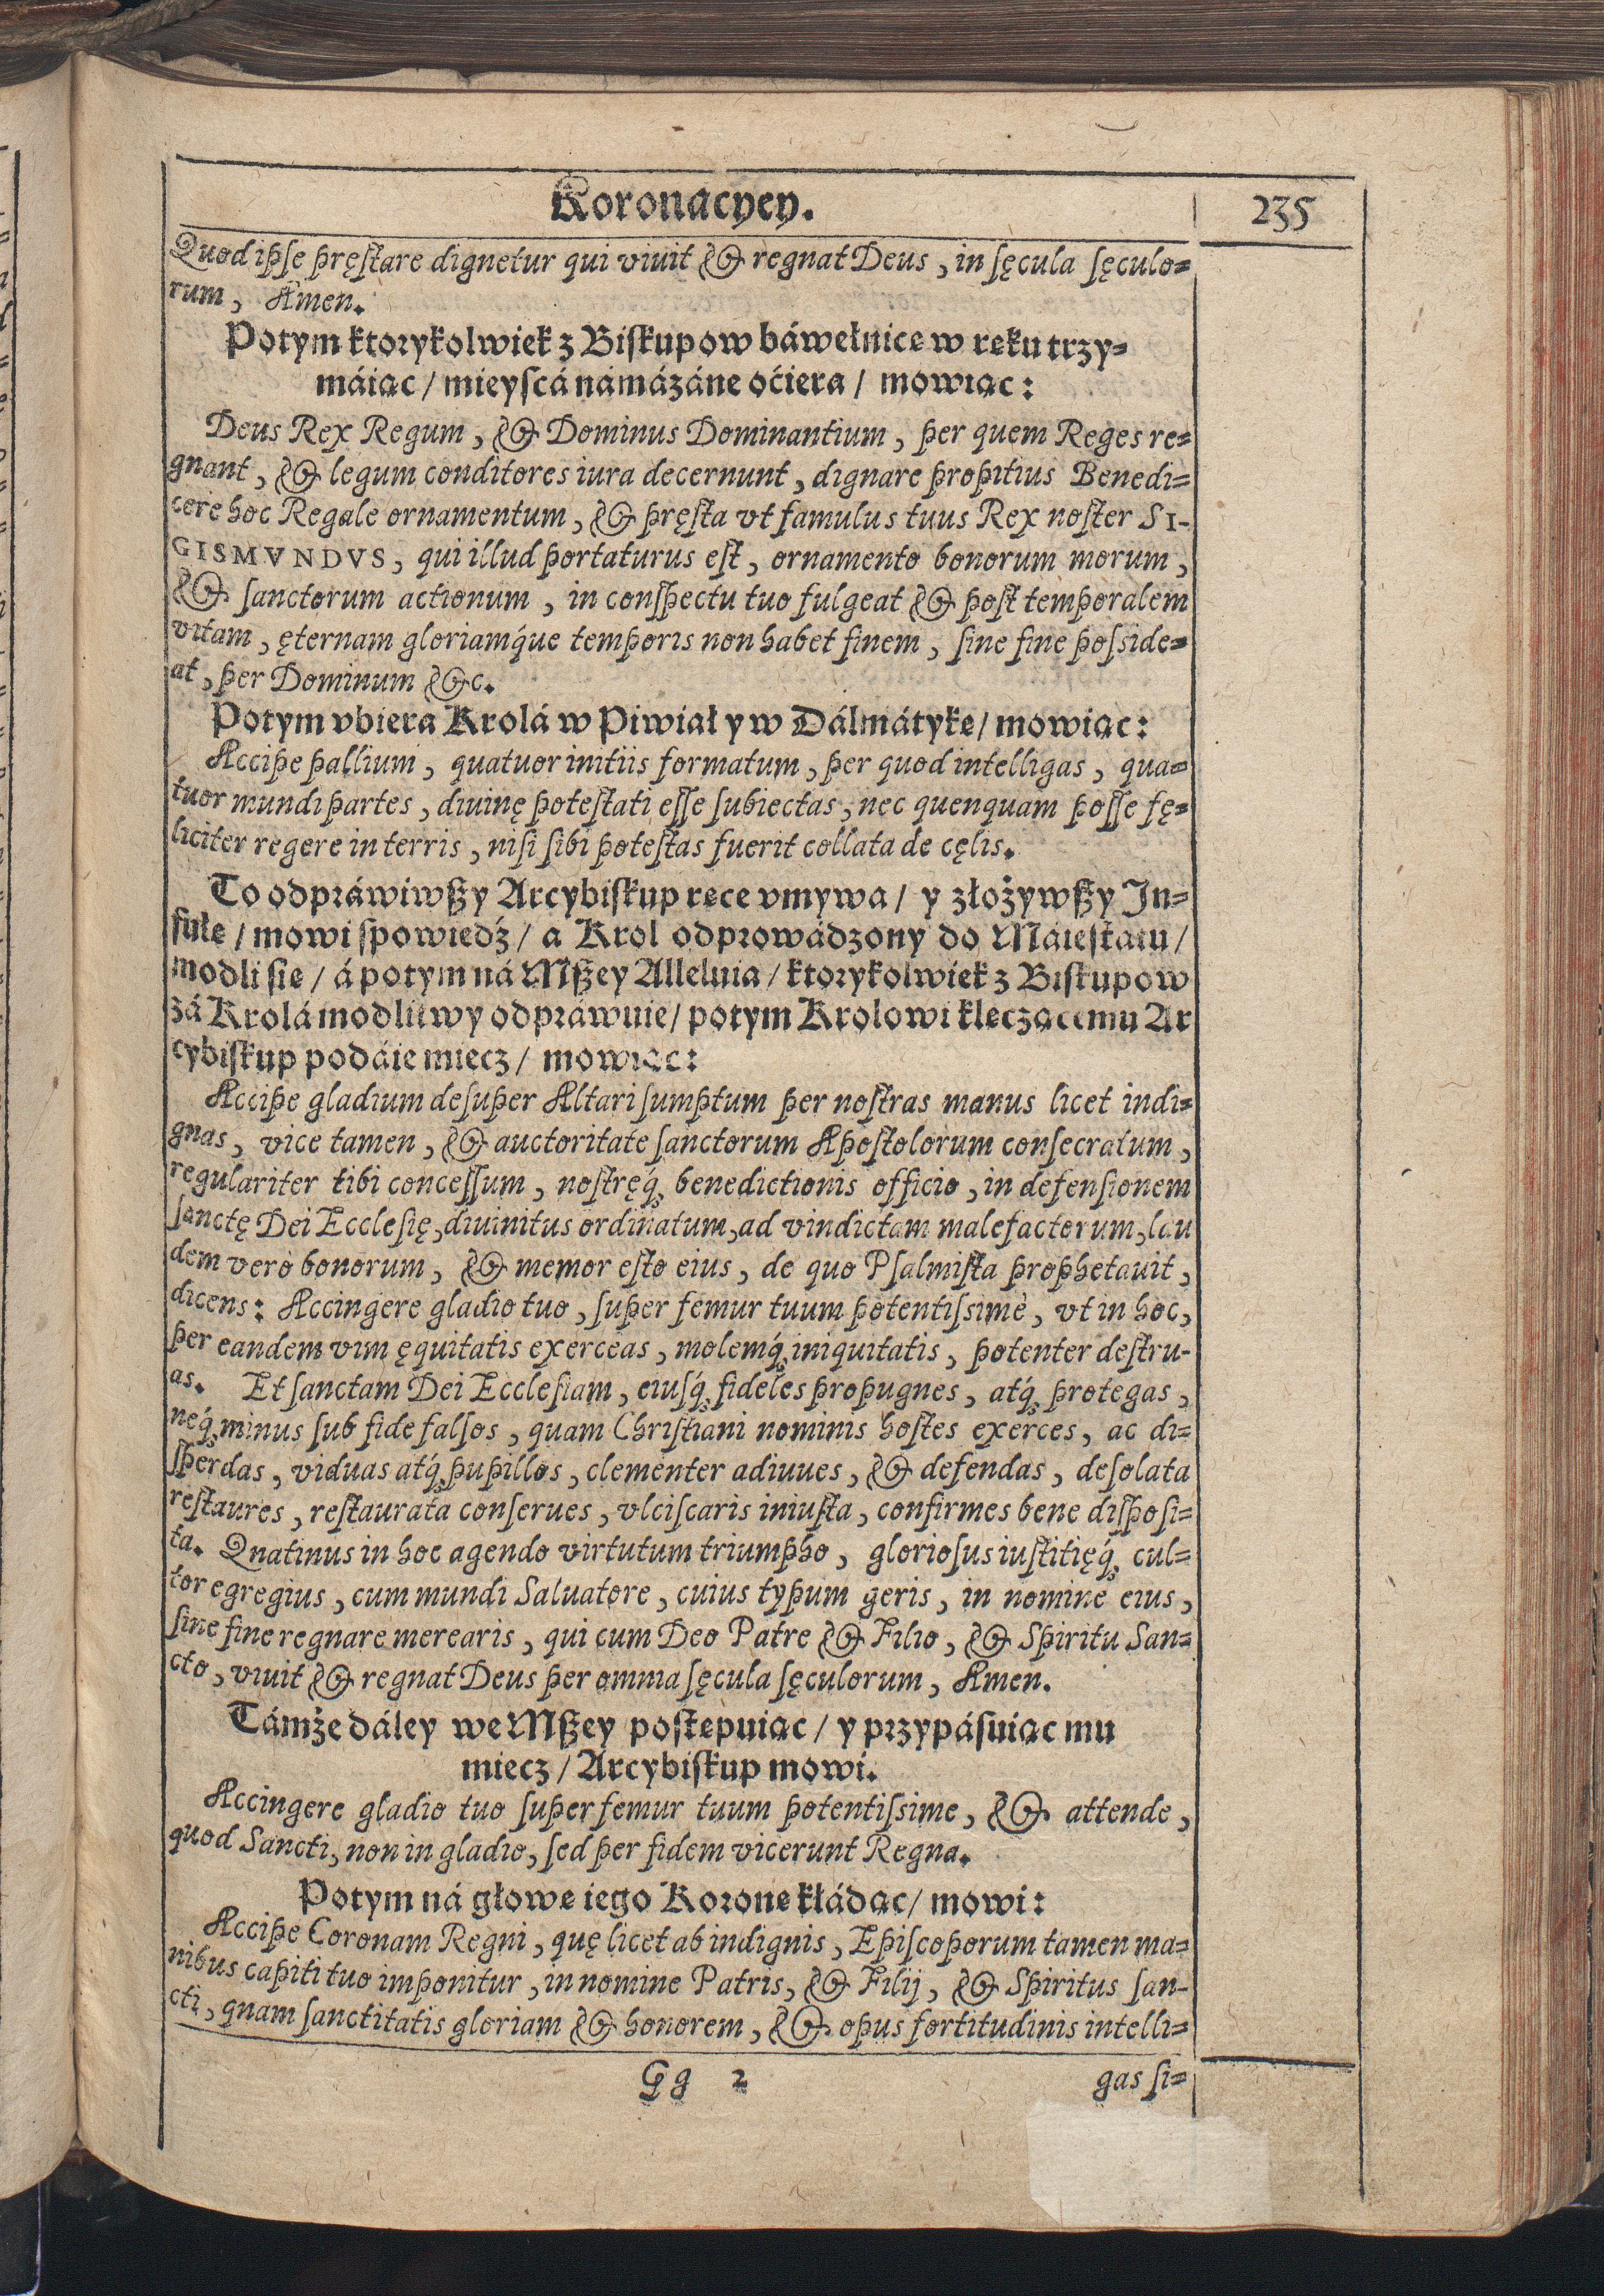 Koronacyey.
235
Quod ipſe pręſtare dignetur qui viuit & regnat Deus, in ſęcula ſęculo=
rum, Amen.
Potym ktorykolwiek z Biſkupow báwełnice w ręku trzy=
máiąc / mieyſcá námázáne oćiera / mowiąc:
Deus Rex Regum, & Dominus Dominantium, per quem Reges re=
gnant, & legum conditores iura decernunt, dignare propitius Benedi=
cere hoc Regale ornamentum, & pręſta vt famulus tuus Rex noſter SI-
GISMVNDVS, qui illud portaturus eſt, ornamento bonorum morum,
& ſanctorum actionum, in conſpectu tuo fulgeat & poſt temporalem
vitam, ęternam gloriamq́ue temporis non habet finem, ſine fine poſside=
at, per Dominum &c.
Potym vbiera Krolá w Piwiał y w Dálmátykę / mowiąc:
Accipe pallium, quatuor initiis formatum, per quod intelligas, qua=
tuor mundi partes, diuinę poteſtati eſſe ſubiectas, nec quenquam poſſe fę=
liciter regere in terris, niſi ſibi poteſtas fuerit collata de cęlis.
To odpráwiwſzy Arcybiſkup ręce vmywa / y złożywſzy In=
fułę / mowi ſpowiedź / a Krol odprowádzony do Máieſtatu /
modli ſie / á potym ná Mſzey Alleluia / ktorykolwiek z Biſkupow
zá Krolá modlitwy odpráwuie / potym Krolowi klęczącemu Ar
cybiſkup podáie miecz / mowiąc:
Accipe gladium deſuper Altari ſumptum per noſtras manus licet indi=
gnas, vice tamen, & auctoritate ſanctorum Apoſtolorum conſecratum,
regulariter tibi conceſſum, noſtręq́; benedictionis officio, in defenſionem
ſanctę Dei Eccleſię, diuinitus ordinatum, ad vindictam malefactorum, lau
dem verò bonorum, & memor eſto eius, de quo Pſalmiſta prophetauit,
dicens: Accingere gladio tuo, ſuper femur tuum potentiſsimè, vt in hoc,
per eandem vim ęquitatis exerceas, molemq́; iniquitatis, potenter deſtru-
as. Et ſanctam Dei Eccleſiam, eiuſq́; fideles propugnes, atq́; protegas,
neq́; minus ſub fide falſos, quam Chriſtiani nominis hoſtes exerces, ac di=
ſperdas, viduas atq́; pupillos, clementer adiuues, & defendas, deſolata
reſtaures, reſtaurata conſerues, vlciſcaris iniuſta, confirmes bene diſpoſi=
ta. Qnatinus in hoc agendo virtutum triumpho, glorioſus iuſtitięq́; cul=
tor egregius, cum mundi Saluatore, cuius typum geris, in nomine eius,
ſine fine regnare merearis, qui cum Deo Patre & Filio, & Spiritu San=
cto, viuit & regnat Deus per omnia ſęcula ſęculorum, Amen.
Támże dáley we Mſzey poſtępuiąc / y przypáſuiąc mu
miecz / Arcybiſkup mowi.
Accingere gladio tuo ſuper femur tuum potentiſsime, & attende,
quod Sancti, non in gladio, ſed per fidem vicerunt Regna.
Potym ná głowę iego Koronę kłádąc / mowi:
Accipe Coronam Regni, quę licet ab indignis, Epiſcoporum tamen ma=
nibus capiti tuo imponitur, in nomine Patris, & Filij, & Spiritus ſan-
cti, qnam ſanctitatis gloriam & honorem, & opus fortitudinis intelli=
Gg 2
gas ſi=